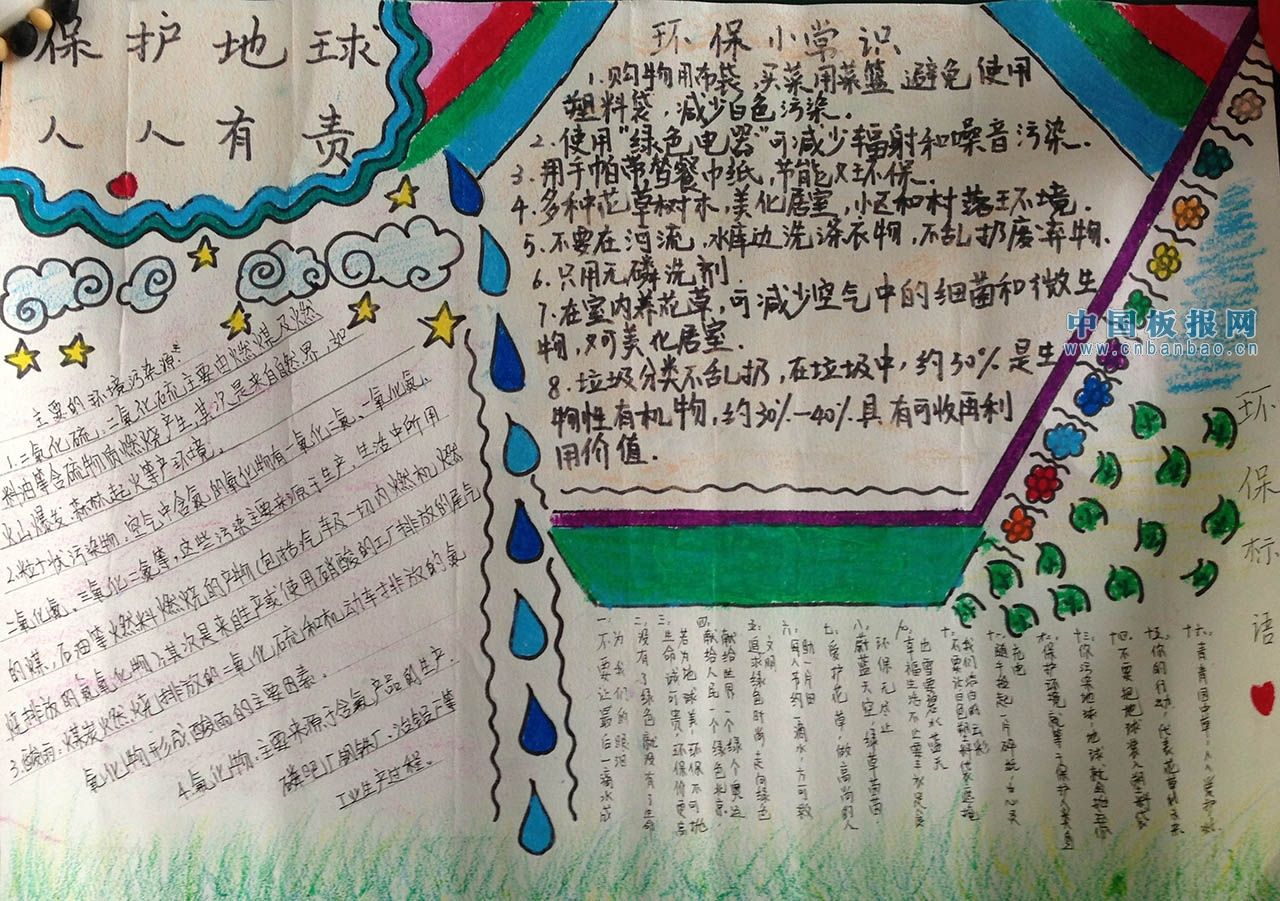 保护地球
人人有责
环保小常识
1.购物用布袋,买菜用菜篮 避免使用
塑料袋,减少白色污染.
2.使用"绿色电器"可减少辐射和噪音污染.
3.用手帕带替餐巾纸,节能又环保.
4.多种花草树木,美化居室,小区和村落环境.
5.不要在河流,水库边洗涤衣物,不乱扔废弃物.
6.只用无磷洗剂
7.在室内养花草,可减少空气中的细菌和微生
物,又可美化居室.
8.垃圾分类不乱扔,在垃圾中,约50%是生
物性有机物,约30%—40%具有可收再利
用价值.
中国板报网
www.cnbanbao.cn
主要的环境污染源:
1.二氧化硫,二氧化硫主要由燃煤及燃
料油等含硫物质燃烧产生,其次是来自自然界,如
火山爆发、森林起火等产环境.
2.粒子状污染物,空气中含氮的氧化物有一氧化二氮、一氧化氮、
二氧化氮、三氧化二氮等,这些污染主要来源于生产、生活中所用
的煤、石油等燃料燃烧的产物(包括汽车及一切内燃机燃
烧排放的氮氧化物);其次是来自生产或使用硝酸的工厂排放的尾气
3.酸雨:煤炭燃烧排放的二氧化硫和机动车排放的氮
氧化物形成酸雨的主要因素.
4.氟化物:主要来源于含氟产品的生产、
磷肥厂、钢铁厂、冶铝厂等
工业生产过程.
环保标语
十六:青青园中草,人人爱护
十五:你的行动,代表花草的未来
十四:不要把地球装入塑料袋
十三:你污染地球,地球就会抛弃你
十二:保护环境就等于保护人类自己
十一:随手捡起一片碎纸
十:不要让白色塑料代表遮掩
我们洁白的云彩
九:幸福生活不止要丰衣足食
也需要碧水蓝天
八:蔚蓝天空,绿草茵茵
环保无止
七:爱护花草,做高尚的人
六:每人节约一滴水,方可救
助一片田
五:追求绿色时尚走向绿色
文明
四:献给人民一个绿色北京,
献给世界一个绿个奥运
三:生命诚可贵,环保价更高
若为地球美,环保不可抛
二:没有了绿色就没有了生命
一:不要让最后一滴水成
为我们的眼泪